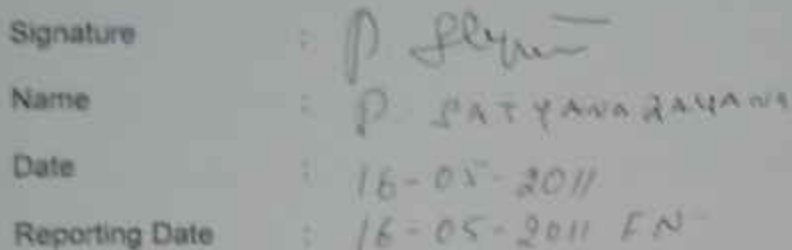 Signature : P
Name : P. SATYANARAYANA
Date : 16-05-2011
Reporting Date : 16-05-2011 FN